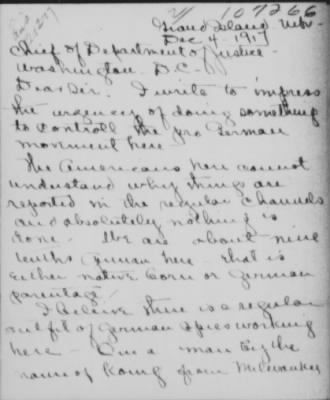 107266
Grand Island Nbr.
Dec 4. 1917
Chief of Department of Justice
Washington D.C.
Dear Sir. I write to impress
the urgency of doing something
to controll the pro German
movement here.
The Americans here cannot
understand why things are
reported in the regular channels
and absolutely nothing is
done. We are about nine
tenths German here - that is
either native born or German
parentage.
I believe there is a regular
outfit of German spies working
here - One a man by the
name of from Milwaukee